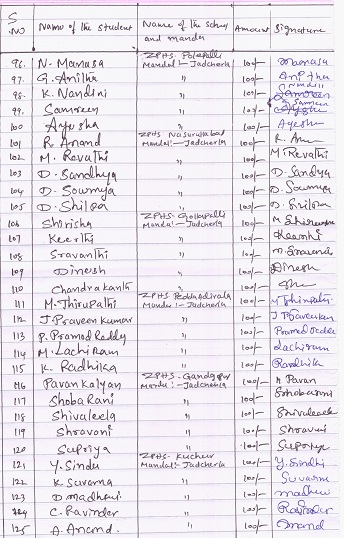 S.No Name of the student Name of the school and mandal Amount Signature
96. N. Manasa ZPHS- Polepalli Mandal:- Jadcherla 10/- Manasa
97. G. Anitha " 10/- Anitha
98. K. Nandini " 10/- Nandini
99. Samreen " 10/- Samreen
100 Ayesha " 10/- Ayesha
101 R. Anand ZPHS Nasurullabad Mandal:- Jadcherla 10/- R. Anand
102 M. Revathi " 10/- M Revathi
103 D. Sandhya " 10/- D. Sandya
104 D. Soumya " 10/- D. Soumya
105 D. Shilpa " 10/- D. Silpa
106 Shirisha ZPHS- Gollapalli Mandal:- Jadcherla 10/-
107 Keerthi " 10/- Keerthi
108 Sravanthi " 10/-
109 Dinesh " 10/- Dinesh
110 Chandrakanth " 10/-
111 M. Thirupathi ZPHS Mandal:- Jadcherla 10/- M Thirupathi
112 J. Praveen Kumar " 10/-
113 P. Pramod Reddy " 10/-
114 M. Lachiram " 10/- Lachiram
115 K. Radhika " 10/- Radhika
116 Pavan Kalyan ZPHS- Mandal:- Jadcherla 10/- Pavan
117 Shoba Rani " 10/- Shobarani
118 Shivaleela " 10/- Shivaleela
119 Shravani " 10/- Shravani
120 Supriya " 10/- Supriya
121 Y. Sindu ZPHS- Kucher Mandal:- Jadcherla 10/- Y. Sindhi
122 K Suvarna " 10/- Suvarna
123 D Madhavi " 10/-
124 C. Ravinder " 10/- Ravinder
125 A. Anand. " 10/- Anand